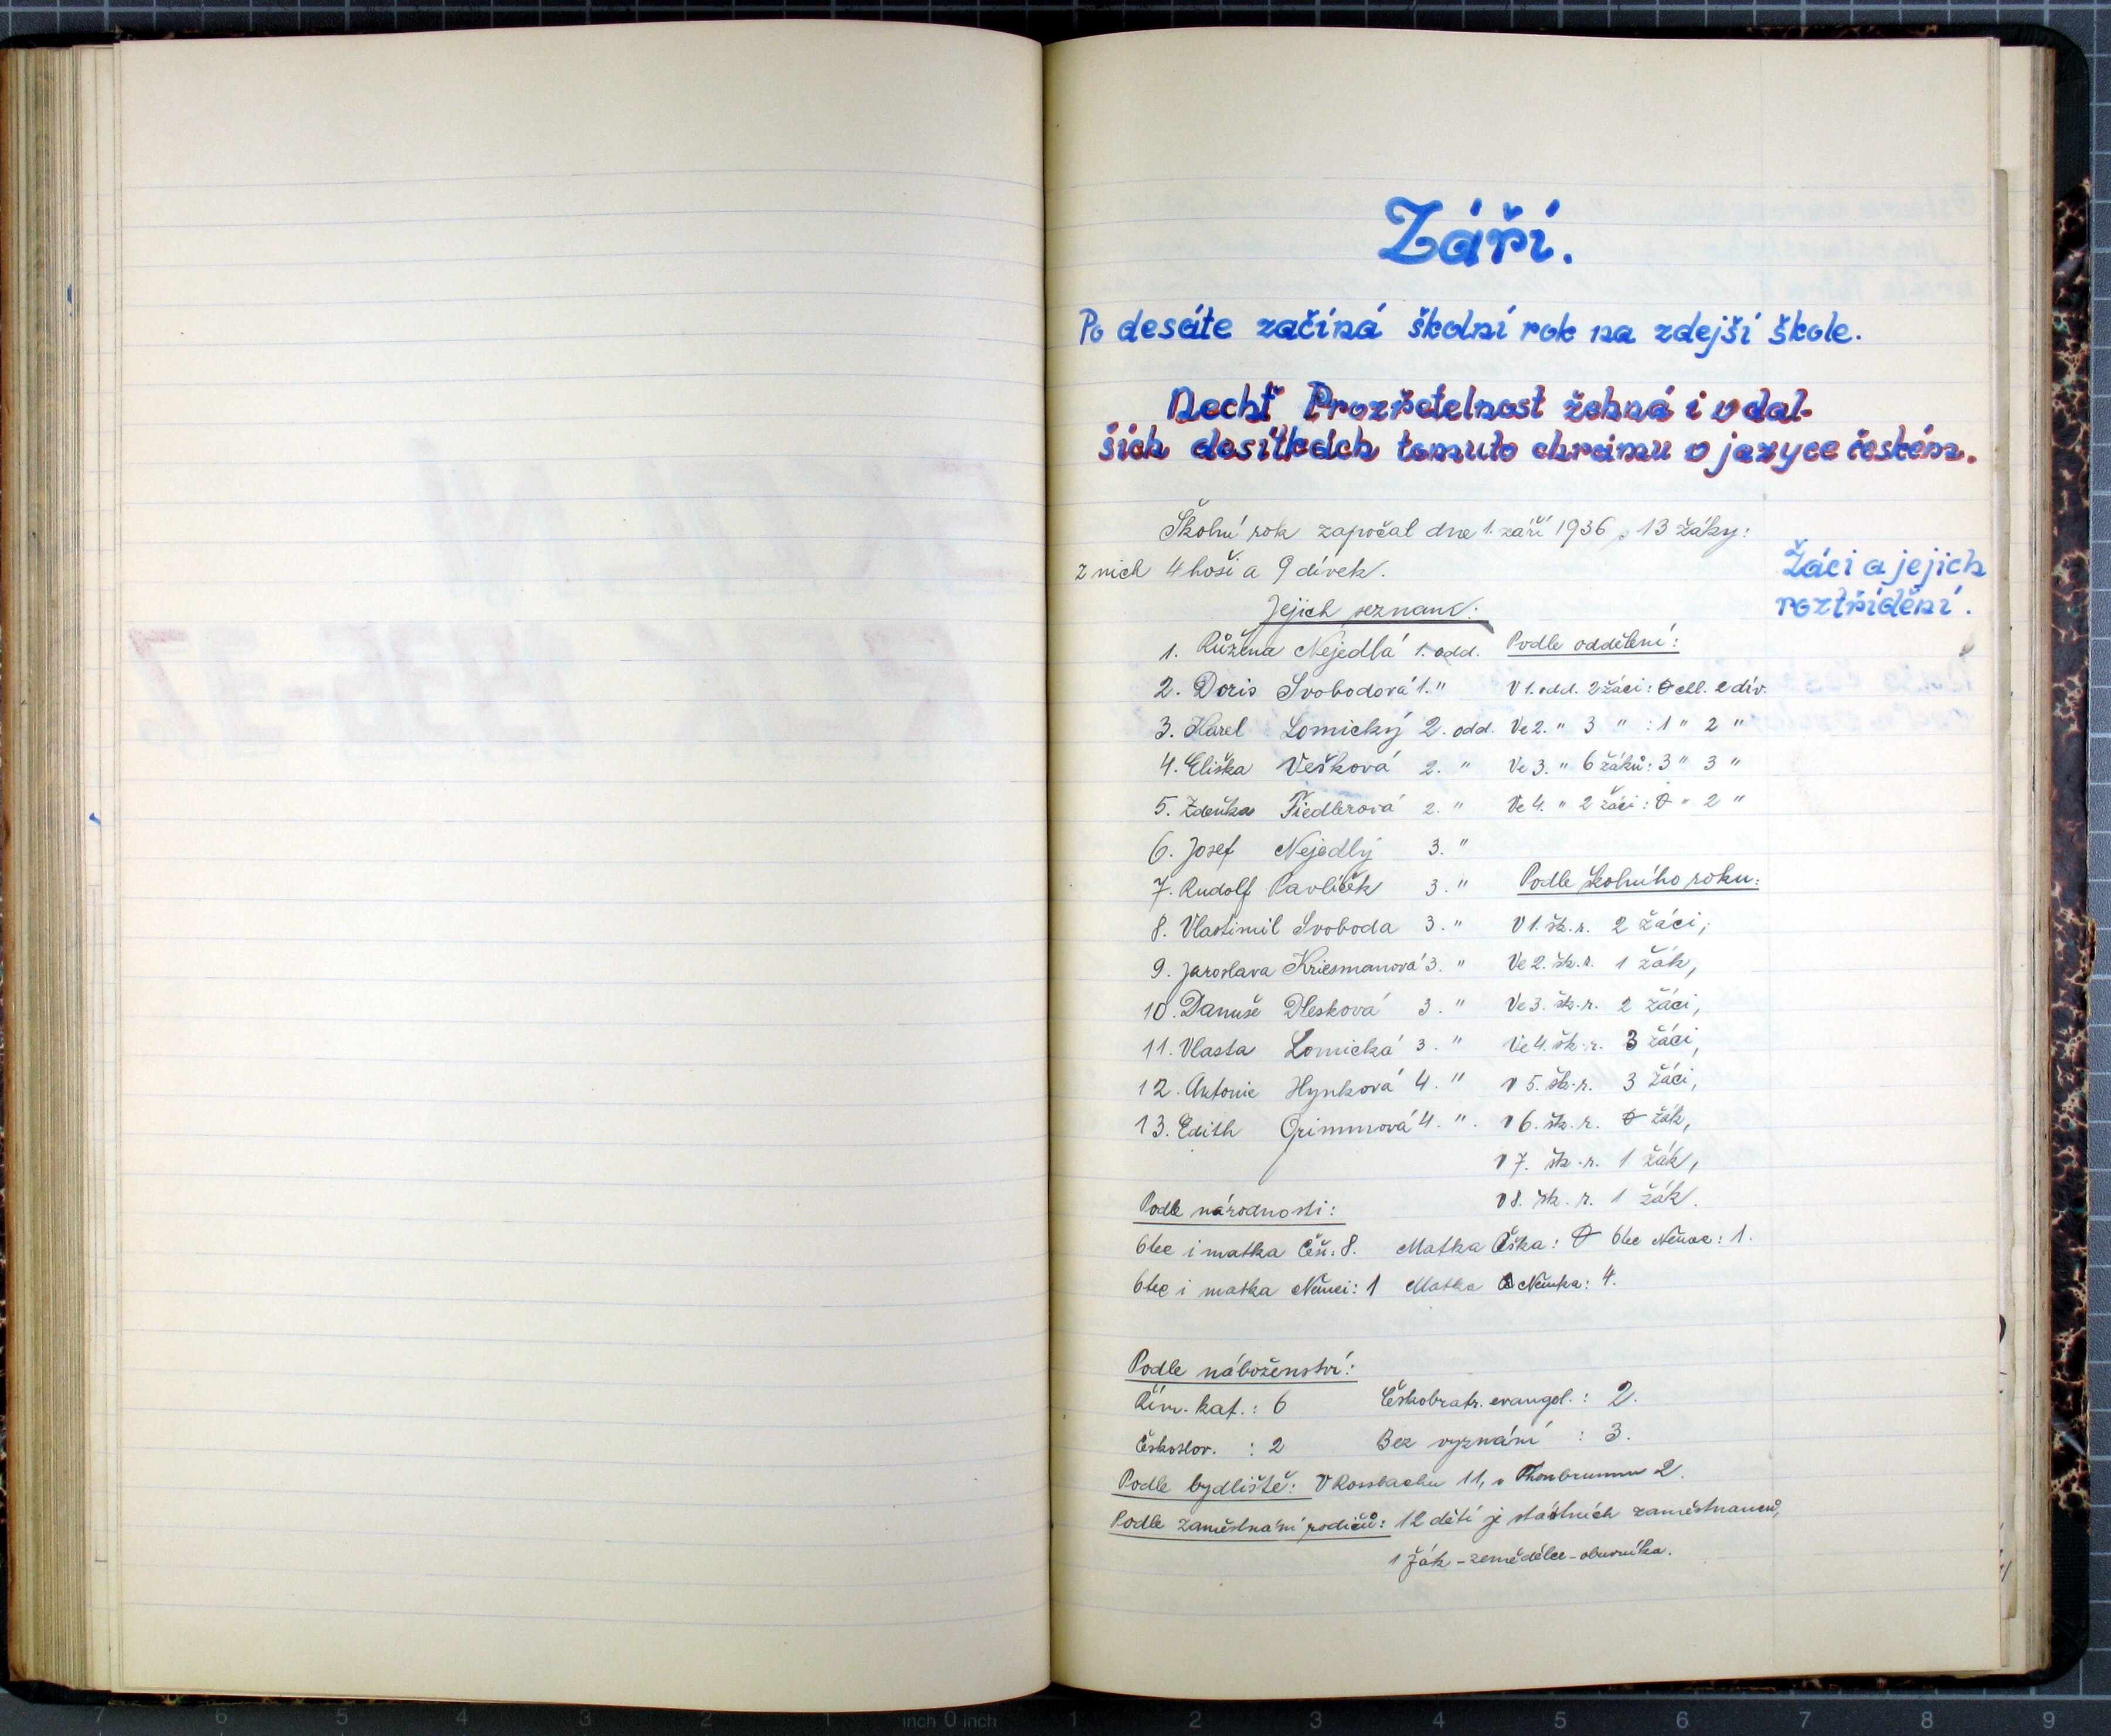 Září.
Po desáte začíná školní rok na zdejší škole.
Nechť Prozřetelnost žehná i v dal-
ších desítkách tomuto chrámu v jazyce českém.
Školní rok započal dne 1. září 1936 s 13 žáky:
z nich 4 hoši a 9 dívek.
Žáci a jejich
roztřídění.
Jejich seznam:
1. Růžena Nejedlá 1. odd. Podle oddělení:
2. Doris Svobodová 1. " V 1. odd. 2 žáci: 0 chl. 2 dív.
3. Karel Lomický 2. odd. Ve 2. " 3 " : 1 " 2 "
4. Eliška Vešková 2. " Ve 3. " 6 žáků: 3 " 3 "
5. Zdeňka Fiedlerová 2. " Ve 4. " 2 žáci: 0 " 2 "
6. Josef Nejedlý 3. "
7. Rudolf Pavlíček 3. " Podle školního roku:
8. Vlastimil Svoboda 3. " V 1. šk. r. 2 žáci,
9. Jaroslava Kriesmanová 3. " Ve 2. šk. r. 1 žák,
10. Danuše Dlesková 3. " Ve 3. šk. r. 2 žáci,
11. Vlasta Lomická 3. " Ve 4. šk. r. 3 žáci,
12. Antonie Hynková 4. " v 5. šk. r. 3 žáci,
13. Edith Grimmová 4. ". v 6. šk. r. 0 žák,
v 7. šk. r. 1 žák,
v 8. šk. r. 1 žák.
Podle národnosti:
Otec i matka Češi: 8. Matka Češka: 0 Otec Němec: 1.
Otec i matka Němci: 1 Matka Němka: 4.
Podle náboženství:
Řím. kat.: 6 Českobratr. evangel.: 2.
Českoslov. : 2 Bez vyznání : 3.
Podle bydliště: V Rossbachu 11, v Thonbrunnu 2.
Podle zaměstnání rodičů: 12 dětí je státních zaměstnanců,
1 žák - zemědělce - obuvníka.
7 6 5 4 3 2 1 inch 0 inch 1 2 3 4 5 6 7 8 9